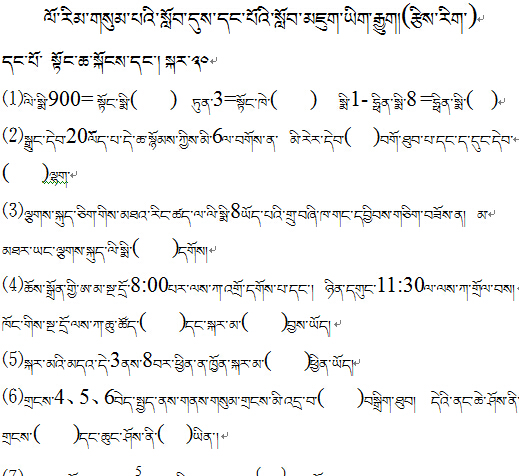 ལོ་རིམ་གསུམ་པའི་སློབ་དུས་དང་པོའི་སློབ་མཇུག་ཡིག་རྒྱུག།(རྩིས་རིག་)
དང་པོ་ སྟོང་ཆ་སྐོངས་དང་།སྐར་༢༠
(1)ལི་སྨི་900=སྟོང་སྨི་( ) ཏུན་3=སྟོང་ཁེ་( ) སྨི་1-ཧྥིན་སྨི་8=ཧྥིན་སྨི་( )
(2)སྒྲུང་དེབ་20ཡོད་པ་དེ་ཆ་སྙོམས་ཀྱིས་མི་6ལ་བགོས་ན་ མི་རེར་དེབ་( )བགོ་ཐུབ་པ་དང་ད་དུང་དེབ་
( )ལྷག
(3)ལྕགས་སྐུད་ཅིག་གིས་མཐའ་རིང་ཚད་ལ་ལི་སྨི་8ཡོད་པའི་གྲུ་བཞི་ཁ་གང་དབྱིབས་གཅིག་བཟོས་ན། མ་
མཐར་ཡང་ལྕགས་སྐུད་ལི་སྨི་( )དགོས།
(4)ཆོས་སྒྲོན་གྱི་ཨ་མ་སྔ་དྲོ་8:00པར་ལས་ཀ་འགྲོ་དགོས་པ་དང་། ཉིན་དགུང་11:30ལ་ལས་ཀ་གྲོལ་བས།
ཁོང་གིས་སྔ་དྲོ་ལས་ཀ་ཆུ་ཚོད་( )དང་སྐར་མ་( )བྱས་ཡོད།
(5)སྐར་མའི་མདའ་དེ་3ནས་8བར་ཕྱིན་ན་ཁྱོན་སྐར་མ་( )ཕྱིན་ཡོད།
(6)གྲངས་4、5、6བེད་སྤྱད་ནས་གནས་གསུམ་གྲངས་མི་འདྲ་བ་( )བསྒྲིག་ཐུབ། དེའི་ནང་ཆེ་ཤོས་ནི་
གྲངས་( )དང་ཆུང་ཤོས་ནི་( )ཡིན་།